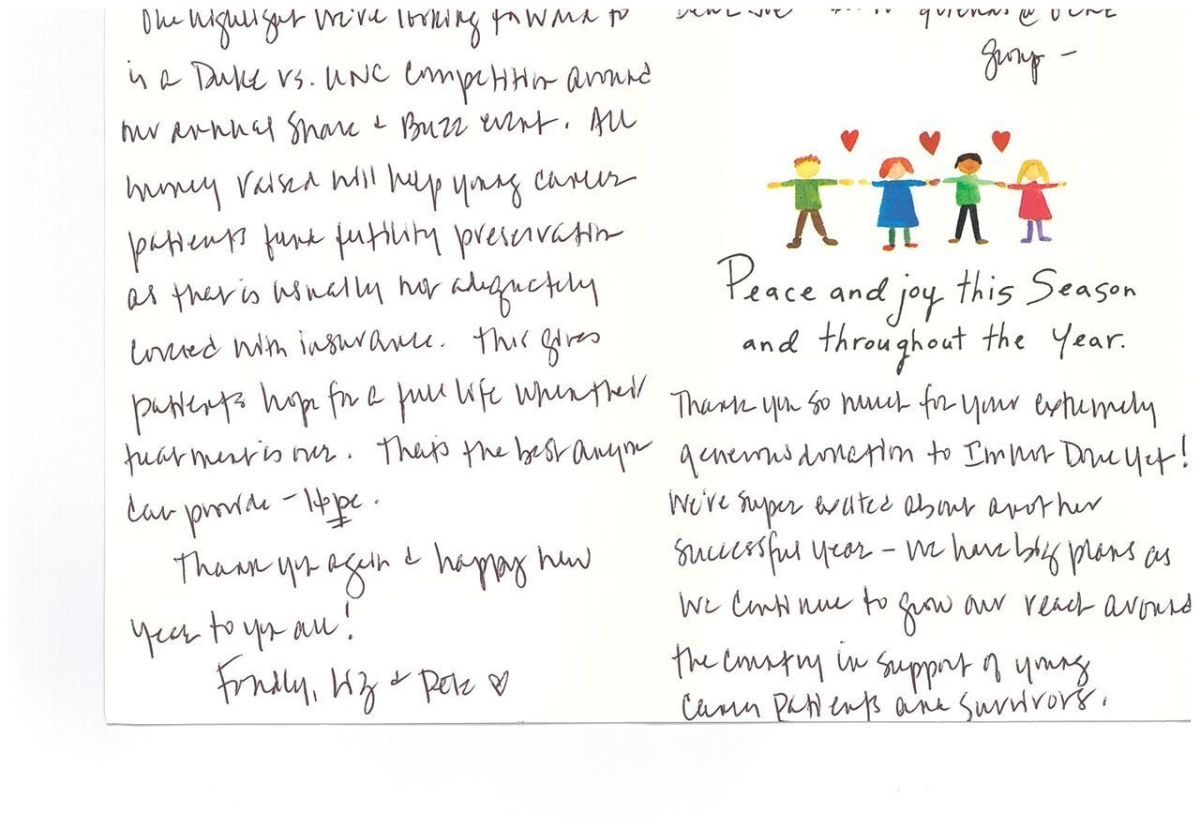 Dear @
group -
Peace and joy this Season
and throughout the Year.
Thank you so much for your extremely
generous donation to I'm Not Done Yet!
We're super excited about another
successful year - we have big plans as
we continue to grow our reach around
the country in support of young
cancer patients and survivors.
The highlight we're looking forward to
is a Duke vs. UNC competition around
our annual Shave & Buzz event. All
money raised will help young cancer
patients fund fertility preservation
as that is usually not adequately
covered with insurance. This gives
patients hope for a full life when their
treatment is over. That's the best anyone
can provide - Hope.
Thank you again & happy new
year to you all!
Fondly, Liz & Pete ♡